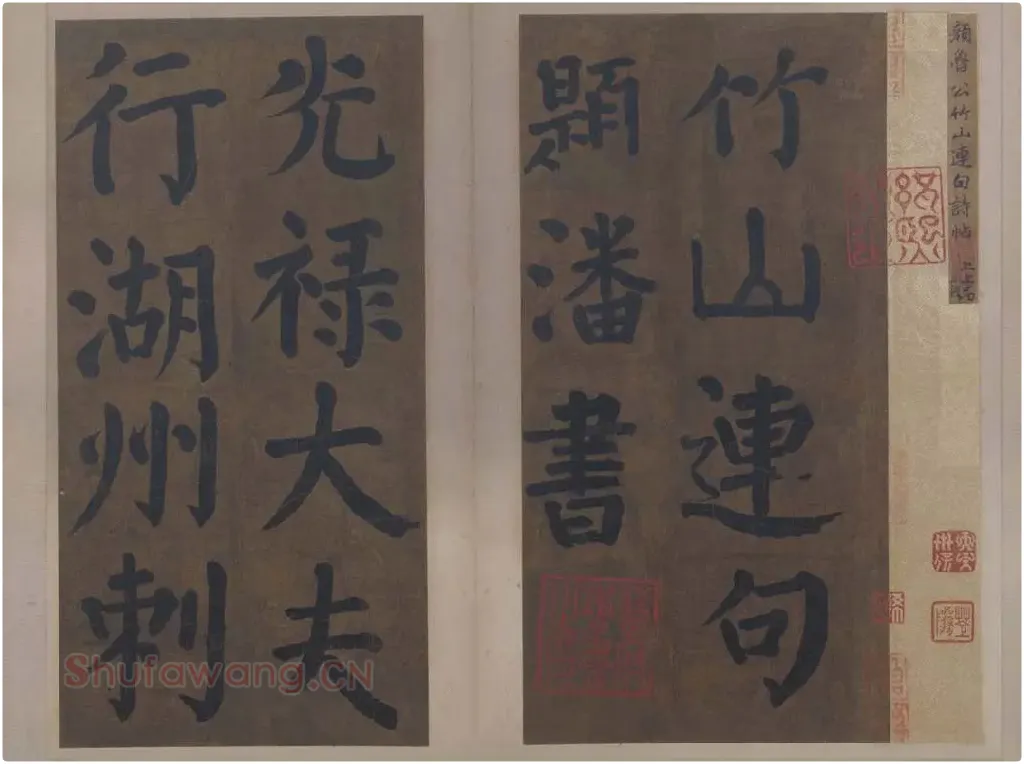 顔魯公竹山連句詩帖 上上品
竹山連句
題潘書
光禄大夫
行湖州刺
Shufawang.CN